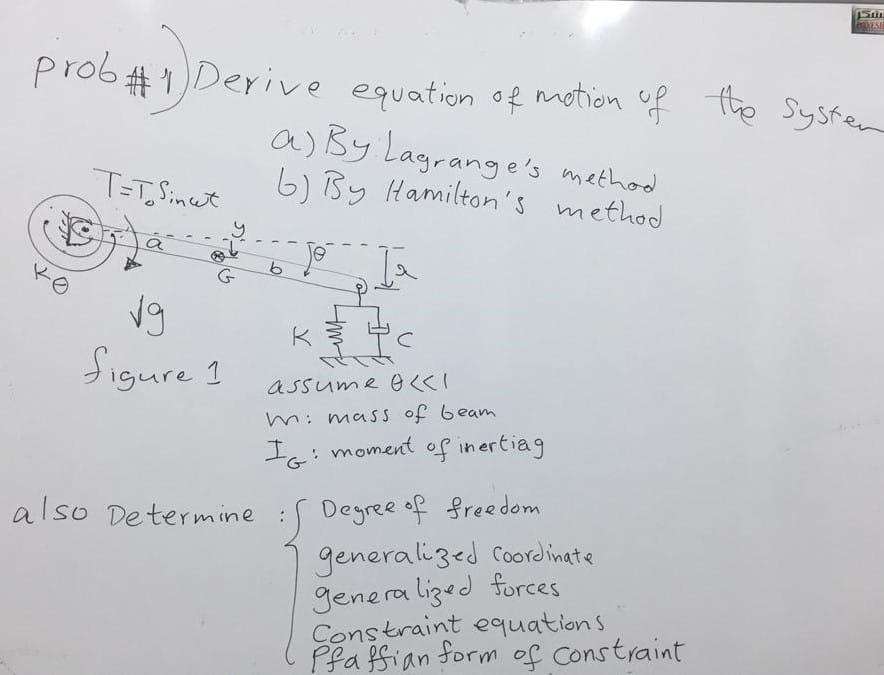 prob #1) Derive equation of motion of the System
a) By Lagrange's method
b) By Hamilton's method
T=T₀ Sinωt
y
θ
a
x
G
b
Kθ
g
K
C
figure 1
assume θ<<1
m: mass of beam
I_G: moment of inertiag
also Determine : { Degree of freedom
generalized Coordinate
generalized forces
Constraint equations
Pfaffian form of constraint